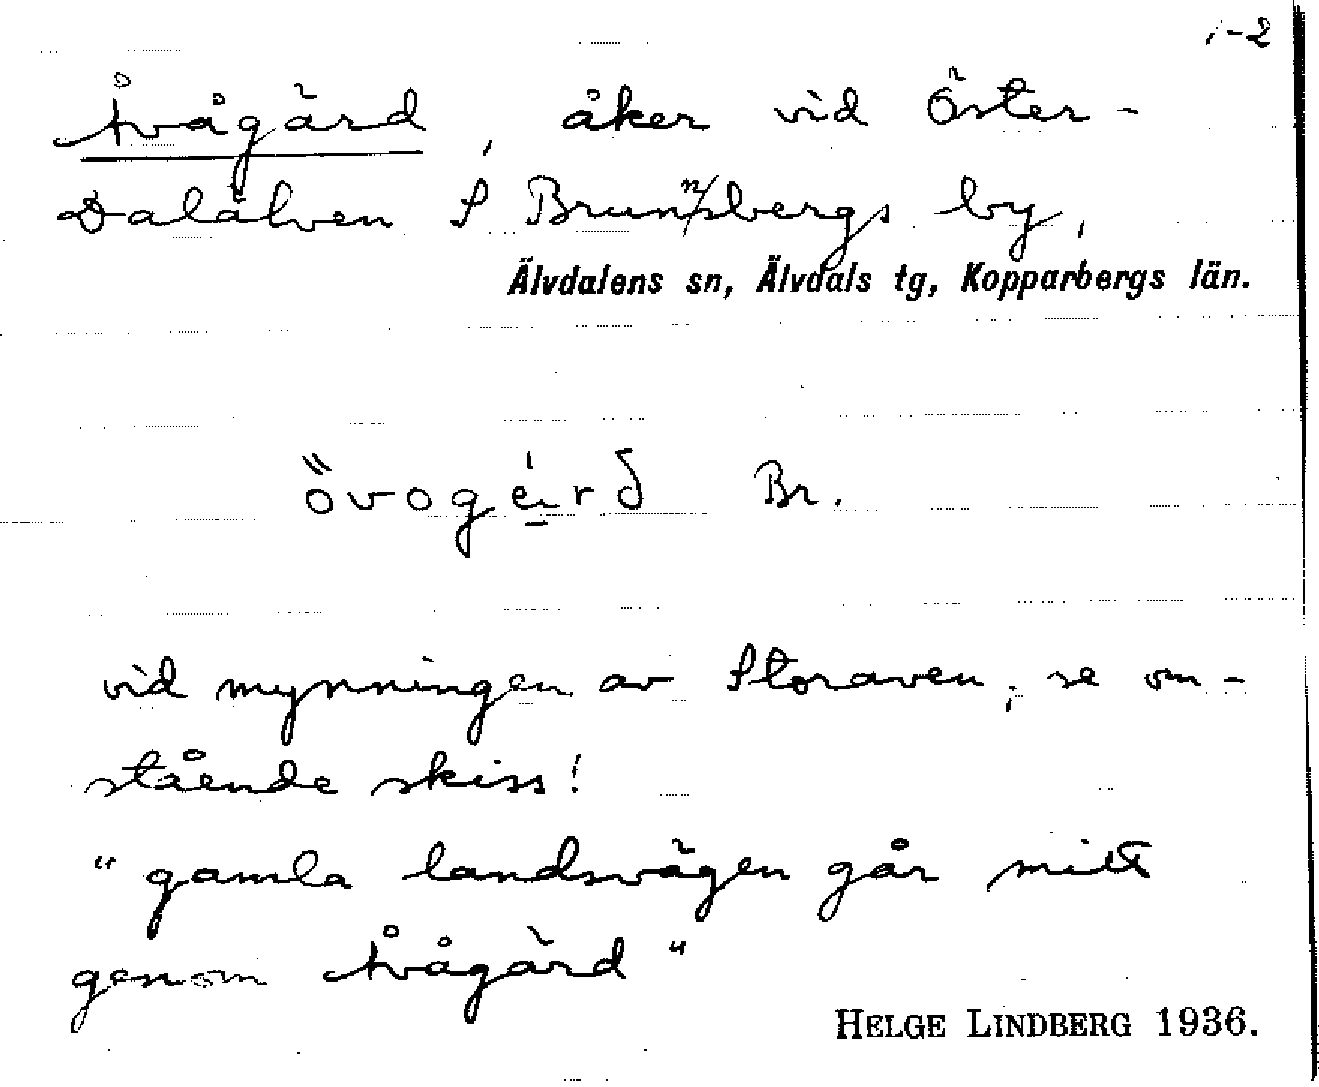 1-2
Åvågärd, åker vid Öster-
Dalälven S Brunnsbergs by,
Älvdalens sn, Älvdals tg, Kopparbergs län.
övogärd Br.
vid mynningen av Storaven; se om-
stående skiss!
"gamla landsvägen går mitt
genom Åvågärd"
HELGE LINDBERG 1936.